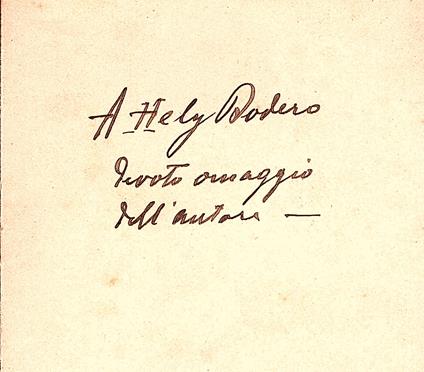 A Hely Bodero
devoto omaggio
dell'autore —